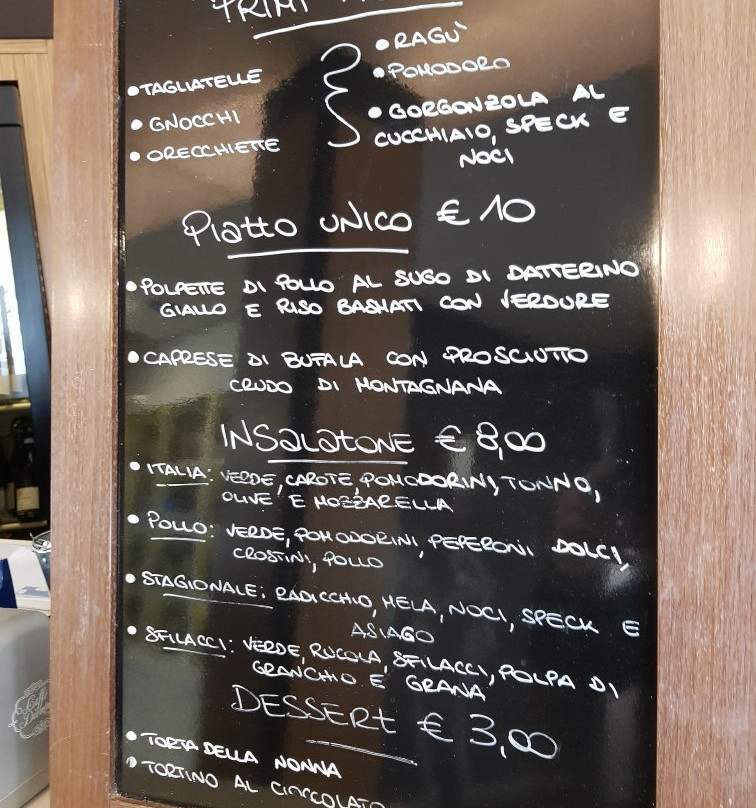 PRIMI
• TAGLIATELLE
• GNOCCHI
• ORECCHIETTE
• RAGÙ
• POMODORO
• GORGONZOLA AL
CUCCHIAIO, SPECK E
NOCI
Piatto UNICO € 10
• POLPETTE DI POLLO AL SUGO DI DATTERINO
GIALLO E RISO BASMATI CON VERDURE
• CAPRESE DI BUFALA CON PROSCIUTTO
CRUDO DI MONTAGNANA
INSALATONE € 8,00
• ITALIA: VERDE, CAROTE, POMODORINI, TONNO,
OLIVE E MOZZARELLA
• POLLO: VERDE, POMODORINI, PEPERONI DOLCI,
CROSTINI, POLLO
• STAGIONALE: RADICCHIO, MELA, NOCI, SPECK E
ASIAGO
• SFILACCI: VERDE, RUCOLA, SFILACCI, POLPA DI
GRANCHIO E GRANA
DESSERT € 3,00
• TORTA DELLA NONNA
• TORTINO AL CIOCCOLATO